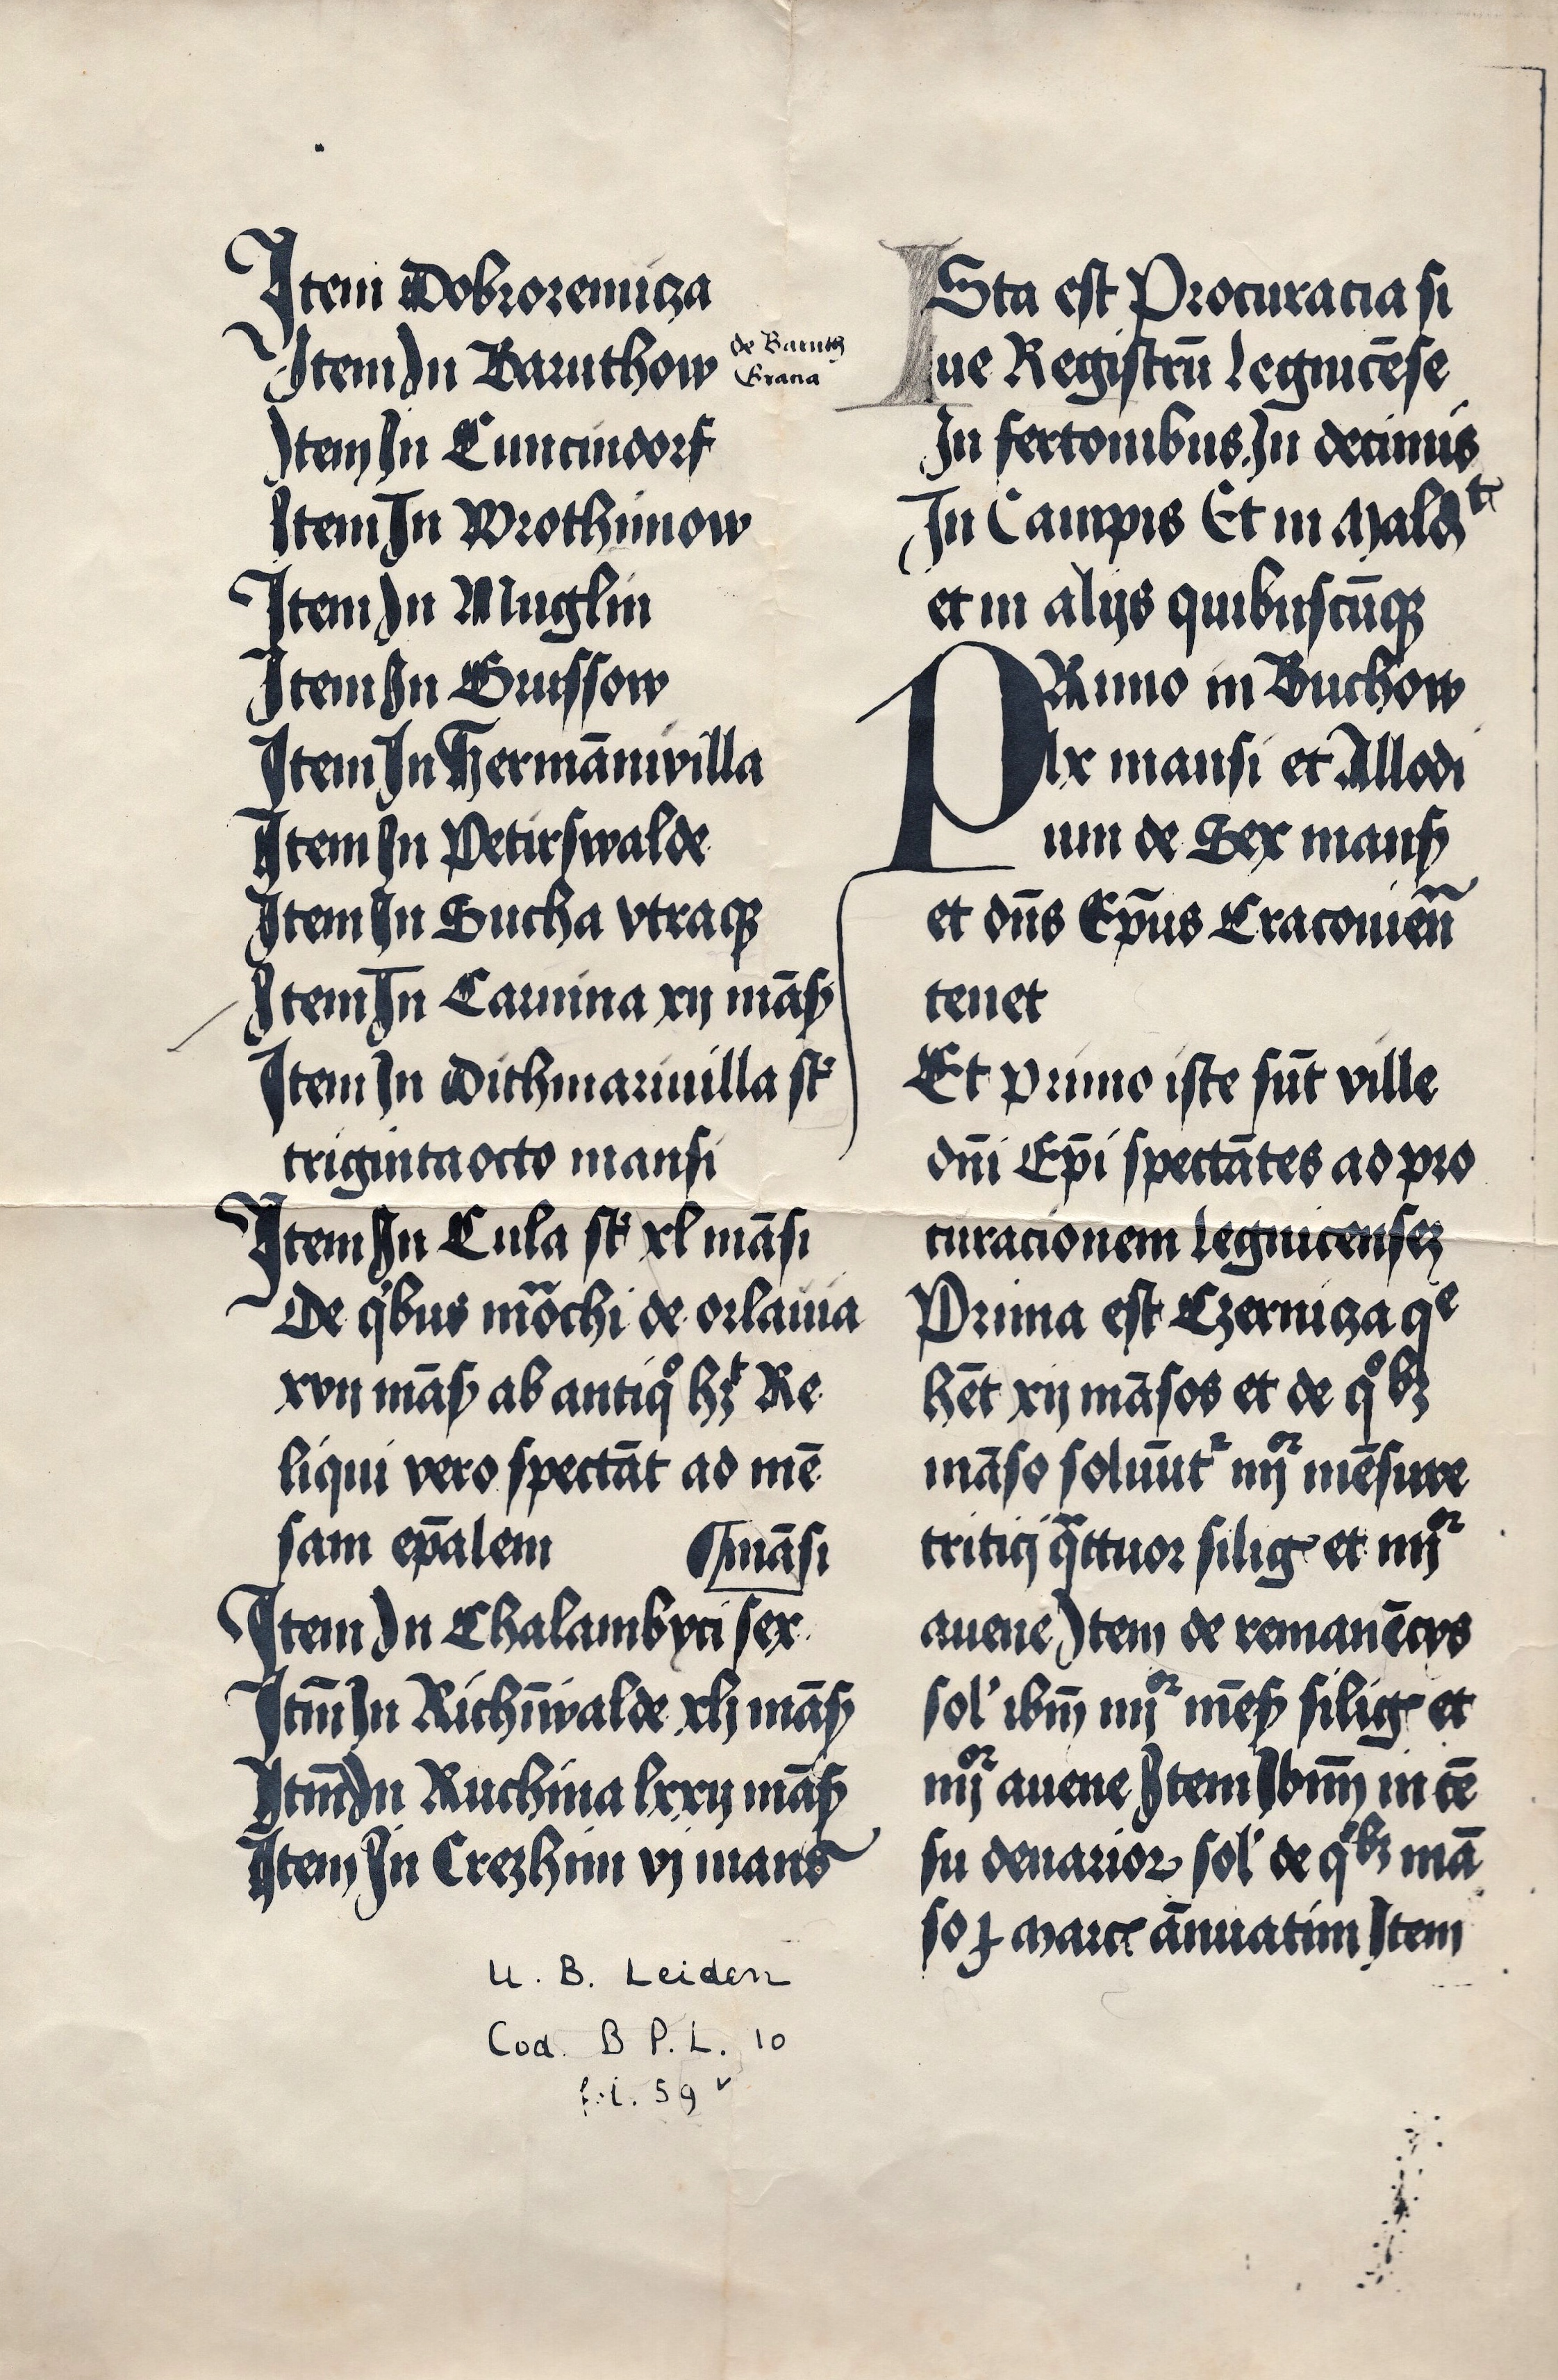 Item Dobroremicza
Item In Baruthow de Baruth
Gracia
Item In Cuncindorf
Item In Wrothimow
Item In Muglin
Item In Grussow
Item In Hermānivilla
Item In Petirswalde
Item In Sucha vtraqꝫ
Item In Carnina xij māsꝭ
Item In Dithmarivilla st
trigintaocto mansi
Item In Cula st xl māsi
De qⁱbus mōchi de orlavia
xvij māsꝭ ab antiqͦ hꝫt Re
liqui vero spectāt ad mē
sam ep̄alem ¶ māsi
Item In Chalambyci sex
Itm̄ In Richn̄walde xlij māsꝭ
Itm̄ In Ruchina lxxij māsꝭ
Item In Crezhim vj mans
U. B. Leiden
Cod. B P. L. 10
fol. 59 v
ISta est Procuracia si
ue Registrū Legnicēse
In fertonibus In decimis
In Campis Et in Maldᵗ
et in alijs quibuscūqꝫ
PRimo in Buchow
lx mansi et Allodi
um de Sex mansꝭ
et dn̄s Ep̄us Cracovien̄
tenet
Et primo iste sūt ville
dn̄i Ep̄i spectātes ad pro
curacionem Legnicensez
Prima est Czernicza qᵉ
hēt xij māsos et de qͦbꝫ
māso soluūtʳ iiijᵒʳ mēsure
tritici qᵃttuor siligꝭ et iiijᵒʳ
auene Item de remanēcijs
sol' ibm̄ iiijᵒʳ mēsꝭ siligꝭ et
iiijᵒʳ auene Item Ibm̄ in cē
su denarioꝝ sol' de qͦbꝫ mā
so ꝑ marcꝭ ānuatim Item